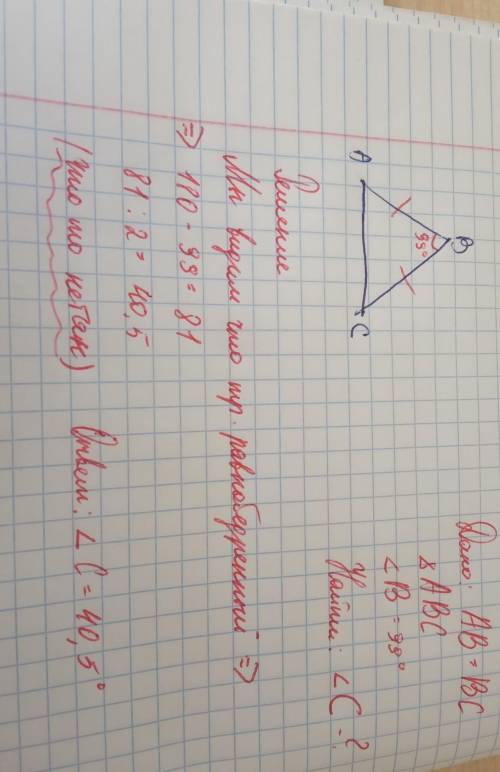 Дано: AB = BC
△ABC
∠B = 99°
Найти: ∠C - ?
B
99°
A
C
Решение
Мы видим что тр. равнобедренный =>
=> 180 - 99 = 81
81 : 2 = 40,5
(что то не так)
Ответ: ∠C = 40,5°